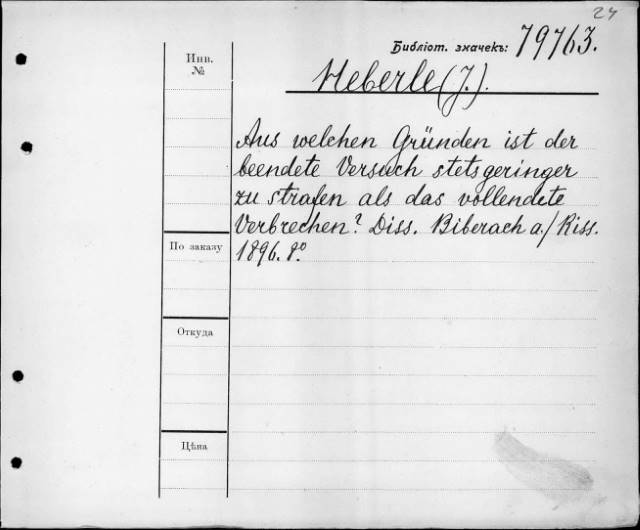 24
Библіот. значекъ: 79763.
Инв.
№
Heberle (J.).
Aus welchen Gründen ist der
beendete Versuch stets geringer
zu strafen als das vollendete
Verbrechen? Diss. Biberach a./Riss.
По заказу
1896. 8.º
Откуда
Цѣна